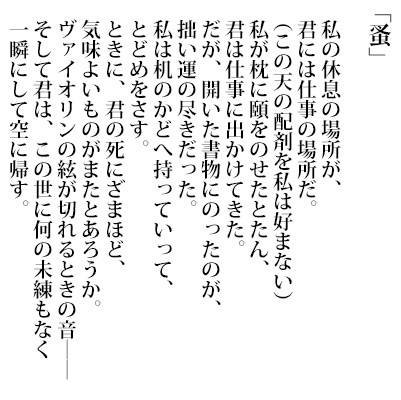 「蚤」
私の休息の場所が、
君には仕事の場所だ。
(この天の配剤を私は好まない)
私が枕に頤をのせたとたん、
君は仕事に出かけてきた。
だが、開いた書物にのったのが、
拙い運の尽きだった。
私は机のかどへ持っていって、
とどめをさす。
ときに、君の死にざまほど、
気味よいものがまたとあろうか。
ヴァイオリンの絃が切れるときの音――
そして君は、この世に何の未練もなく
一瞬にして空に帰す。